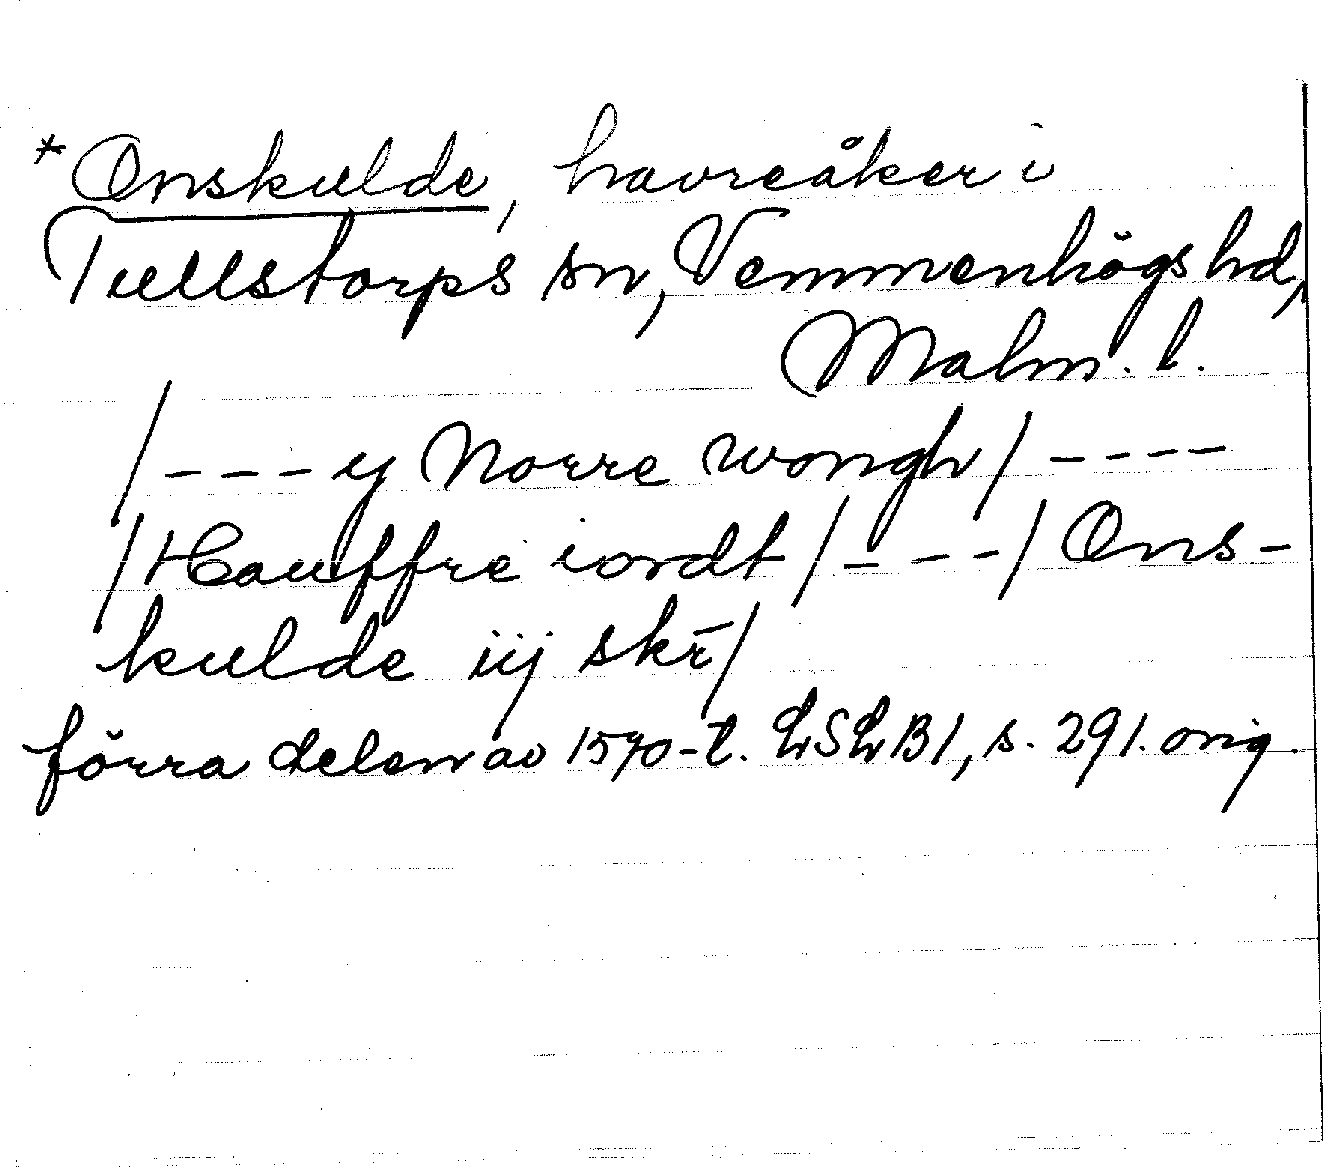 *Onskulde, havreåker i
Tullstorps sn, Vemmenhögs hd,
Malm. l.
/---y Norre wongh/----
/Hauffre iordt/---/Ons-
kulde iij skr̄/
förra delen av 1570-t. LSLB1, s. 291. orig.